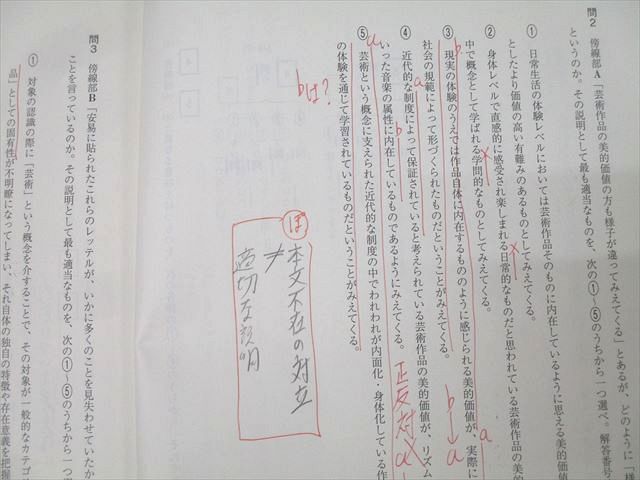 問2 傍線部A「芸術作品の美的価値の方も様子が違ってみえてくる」とあるが、どのように「様
というのか。その説明として最も適当なものを、次の①〜⑤のうちから一つ選べ。解答番号
① 日常生活の体験レベルにおいては芸術作品そのものに内在しているように思える美的価
としたより価値の高い有難みのあるものとしてみえてくる。
② 身体レベルで直感的に感受され楽しまれる日常的なものだと思われている芸術作品の美的
中で概念として学ばれる学問的なものとしてみえてくる。
③ 現実の体験のうえでは作品自体に内在するもののように感じられる美的価値が、実際に
社会の規範によって形づくられたものだということがみえてくる。
④ 近代的な制度によって保証されていると考えられている芸術作品の美的価値が、リズム
いった音楽の属性に内在しているものであるようにみえてくる。
⑤ 芸術という概念に支えられた近代的な制度の中でわれわれが内面化・身体化している作
の体験を通じて学習されているものだということがみえてくる。
b
a
b→a
a
b
正反対
a
a
bは?
ぽ
本文不在の対立
≠
適切な説明
問3 傍線部B「安易に貼られたこれらのレッテルが、いかに多くのことを見失わせていたか
ことを言っているのか。その説明として最も適当なものを、次の①〜⑤のうちから一つ
① 対象の認識の際に「芸術」という概念を介することで、その対象が一般的なカテゴ
品」としての固有性が不明瞭になってしまい、それ自体の独自の特徴や存在意義を把握